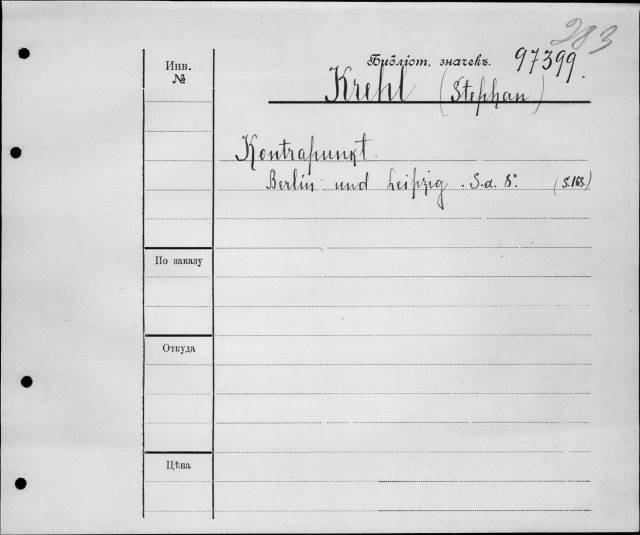 283
Библіот. значекъ. 97399.
Инв.
№
Krehl (Stephan)
Kontrapunkt.
Berlin und Leipzig. S.a. 8°. (S.168.)
По заказу
Откуда
Цѣна